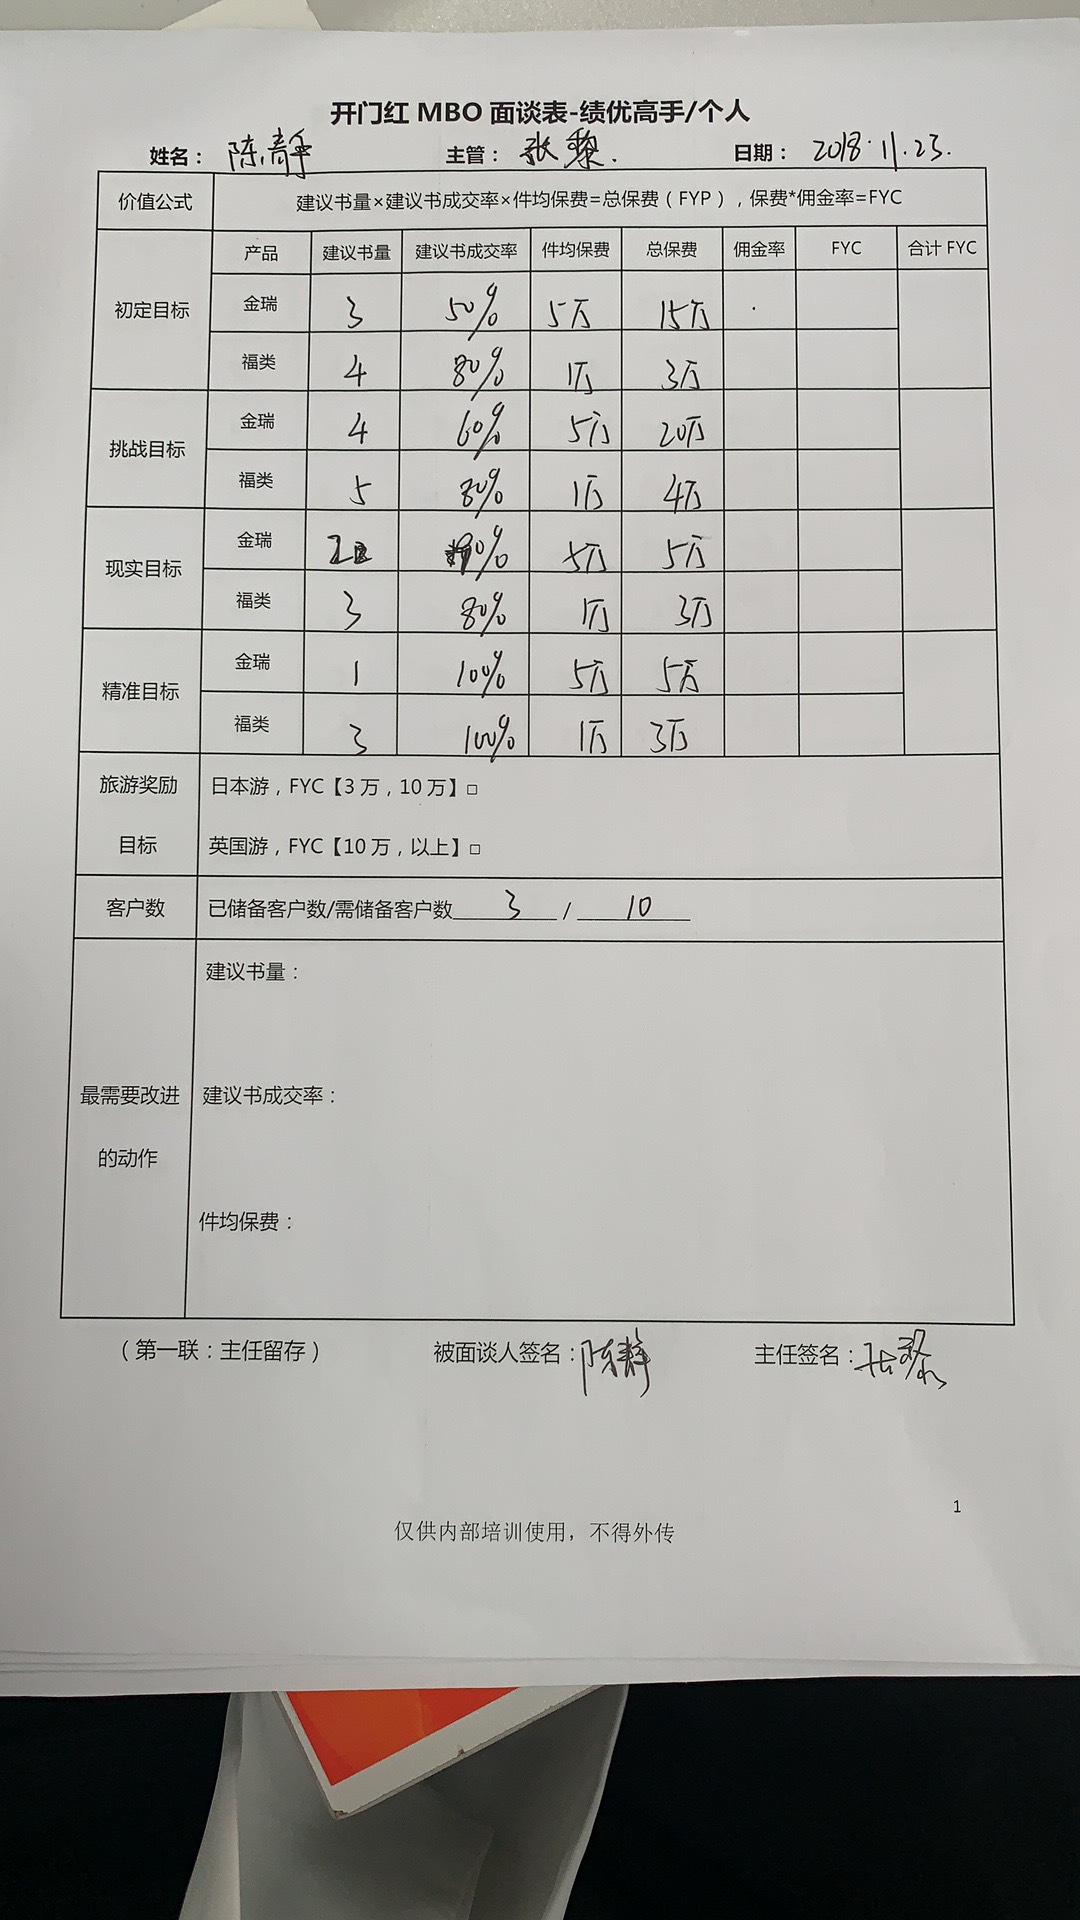 开门红 MBO 面谈表-绩优高手/个人
姓名：陈静 主管：张黎. 日期：2018.11.23.
价值公式 建议书量×建议书成交率×件均保费=总保费（FYP），保费*佣金率=FYC
产品 建议书量 建议书成交率 件均保费 总保费 佣金率 FYC 合计 FYC
初定目标
金瑞 3 50% 5万 15万
福类 4 80% 1万 3万
挑战目标
金瑞 4 60% 5万 20万
福类 5 80% 1万 4万
现实目标
金瑞 5万 5万
福类 3 80% 1万 3万
精准目标
金瑞 1 100% 5万 5万
福类 3 100% 1万 3万
旅游奖励
目标
日本游，FYC【3万，10万】□
英国游，FYC【10万，以上】□
客户数 已储备客户数/需储备客户数 3 / 10
最需要改进
的动作
建议书量：
建议书成交率：
件均保费：
（第一联：主任留存） 被面谈人签名：陈静 主任签名：张黎
1
仅供内部培训使用，不得外传